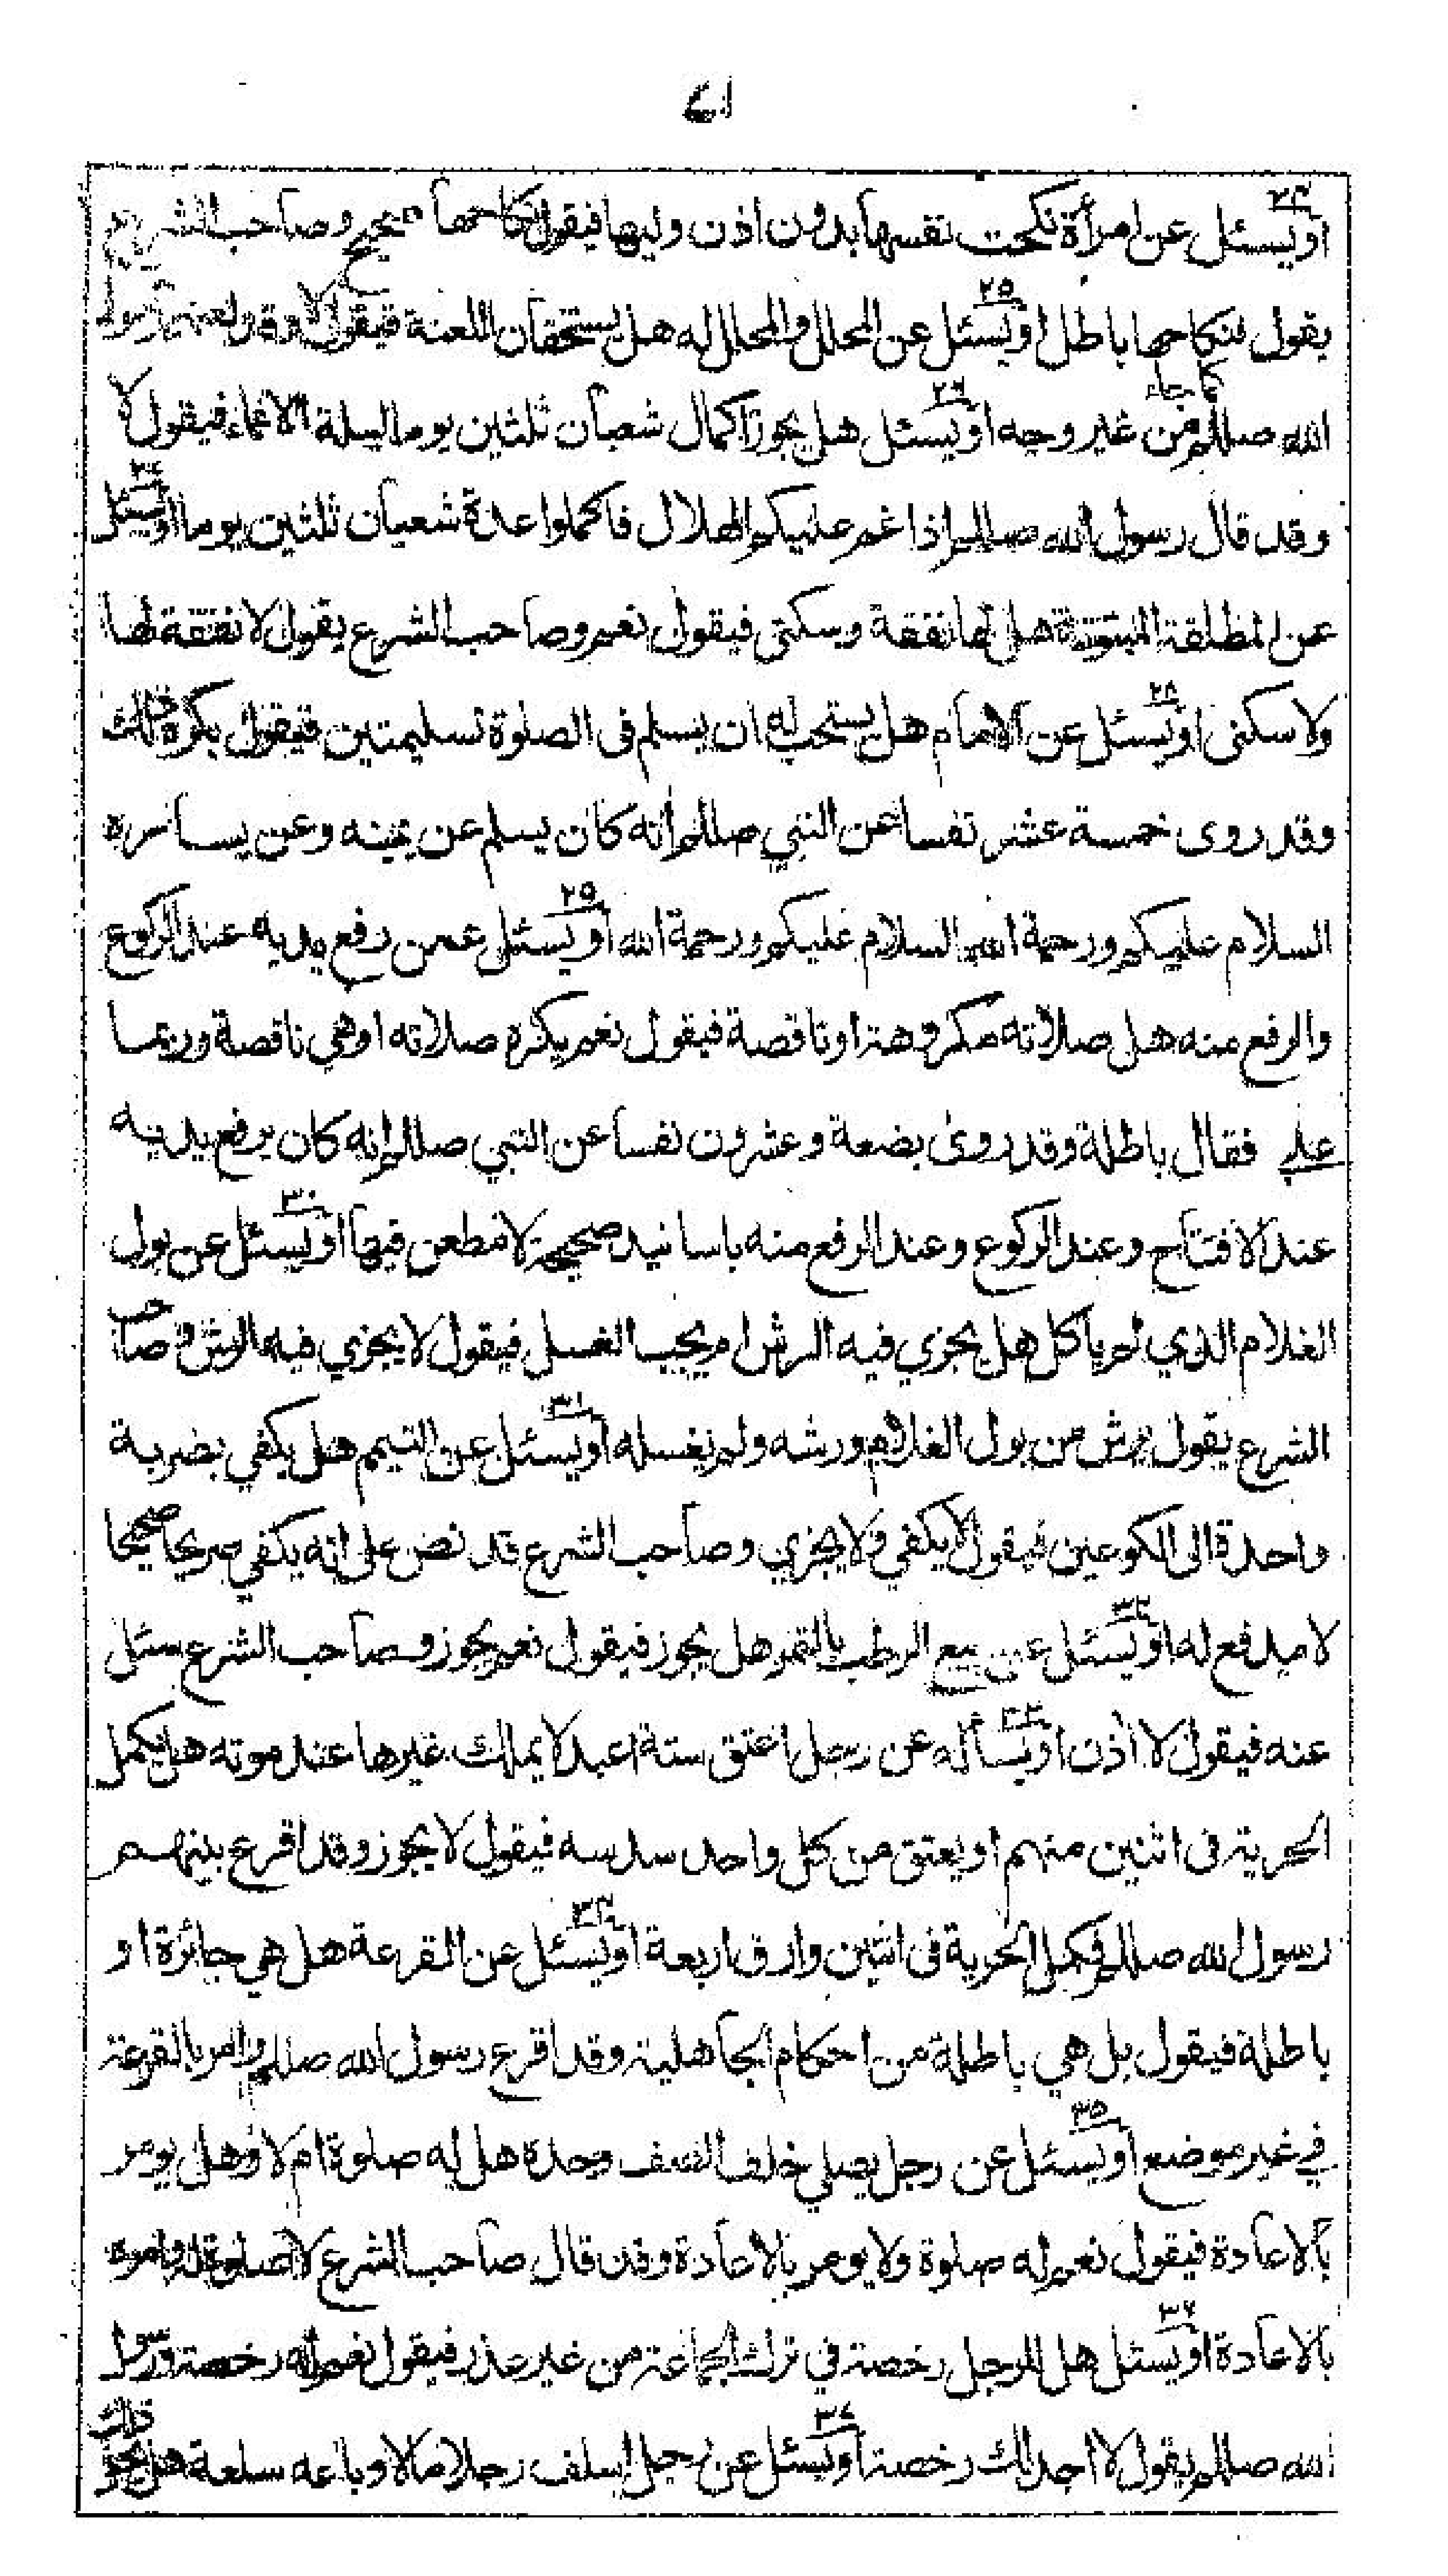 ٧١
٢٤
او يسئل عن امرأة نكحت نفسها بدون اذن وليها فيقول نكاحها صحيح وصاحب الشرع
٢٥
يقول فنكاحها باطل او يسئل عن المحلل والمحلل له هل يستحقان اللعنة فيقول لا وقد لعنهما رسول
كما جاء
٢٦
الله صللم من غير وجه او يسئل هل يجوز اكمال شعبان ثلثين يوما ليلة الاغماء فيقول لا
٢٧
وقد قال رسول الله صللم اذا غم عليكم الهلال فاكملوا عدة شعبان ثلثين يوما او يسئل
عن المطلقة المبتوتة هل لها نفقة وسكنى فيقول نعم وصاحب الشرع يقول لا نفقة لها
٢٨
ولا سكنى او يسئل عن الامام هل يستحب له ان يسلم فى الصلوة تسليمتين فيقول يكره ذلك
وقد روى خمسة عشر نفسا عن النبي صللم انه كان يسلم عن يمينه وعن يساره
٢٥
السلام عليكم ورحمة الله السلام عليكم ورحمة الله او يسئل عمن رفع يديه عند الركوع
والرفع منه هل صلاته مكروهة او ناقصة فيقول نعم يكره صلاته او هي ناقصة وربما
علي فقال باطلة وقد روى بضعة وعشرون نفسا عن النبي صللم انه كان يرفع يديه
٣٠
عند الافتتاح وعند الركوع وعند الرفع منه باسانيد صحيحة لا مطعن فيها او يسئل عن بول
الغلام الذي لم ياكل هل يجزي فيه الرش ام يجب الغسل فيقول لا يجزي فيه الرش وصاحب
٣١
الشرع يقول يرش من بول الغلام ورشه ولم يغسله او يسئل عن التيمم هل يكفي بضربة
واحدة الى الكوعين فيقول لا يكفي ولا يجزي وصاحب الشرع قد نص على انه يكفي صريحا صحيحا
٣٢
لا مدفع له او يسئل عن بيع الرطب بالتمر هل يجوز فيقول نعم يجوز وصاحب الشرع سئل
٣٣
عنه فيقول لا اذن او يسأله عن رجل اعتق ستة اعبد لا يملك غيرها عند موته هل يكمل
الحرية فى اثنين منهم او يعتق من كل واحد سدسه فيقول لا يجوز وقد اقرع بينهم
٣٤
رسول الله صللم فكمل الحرية فى اثنين وارق اربعة او يسئل عن القرعة هل هي جائزة او
باطلة فيقول بل هي باطلة من احكام الجاهلية وقد اقرع رسول الله صللم وامر بالقرعة
٣٥
في غير موضع او يسئل عن رجل يصلي خلف الصف وحده هل له صلوة ام لا وهل يومر
بالاعادة فيقول نعم له صلوة ولا يومر بالاعادة وقد قال صاحب الشرع لا صلوة له وامره
٣٦
بالاعادة او يسئل هل للرجل رخصة في ترك الجماعة من غير عذر فيقول نعم له رخصة ورسول
٣٧
الله صللم يقول لا اجد لك رخصة او يسئل عن رجل اسلف رجلا مالا وباعه سلعة هل يجوز ذلك